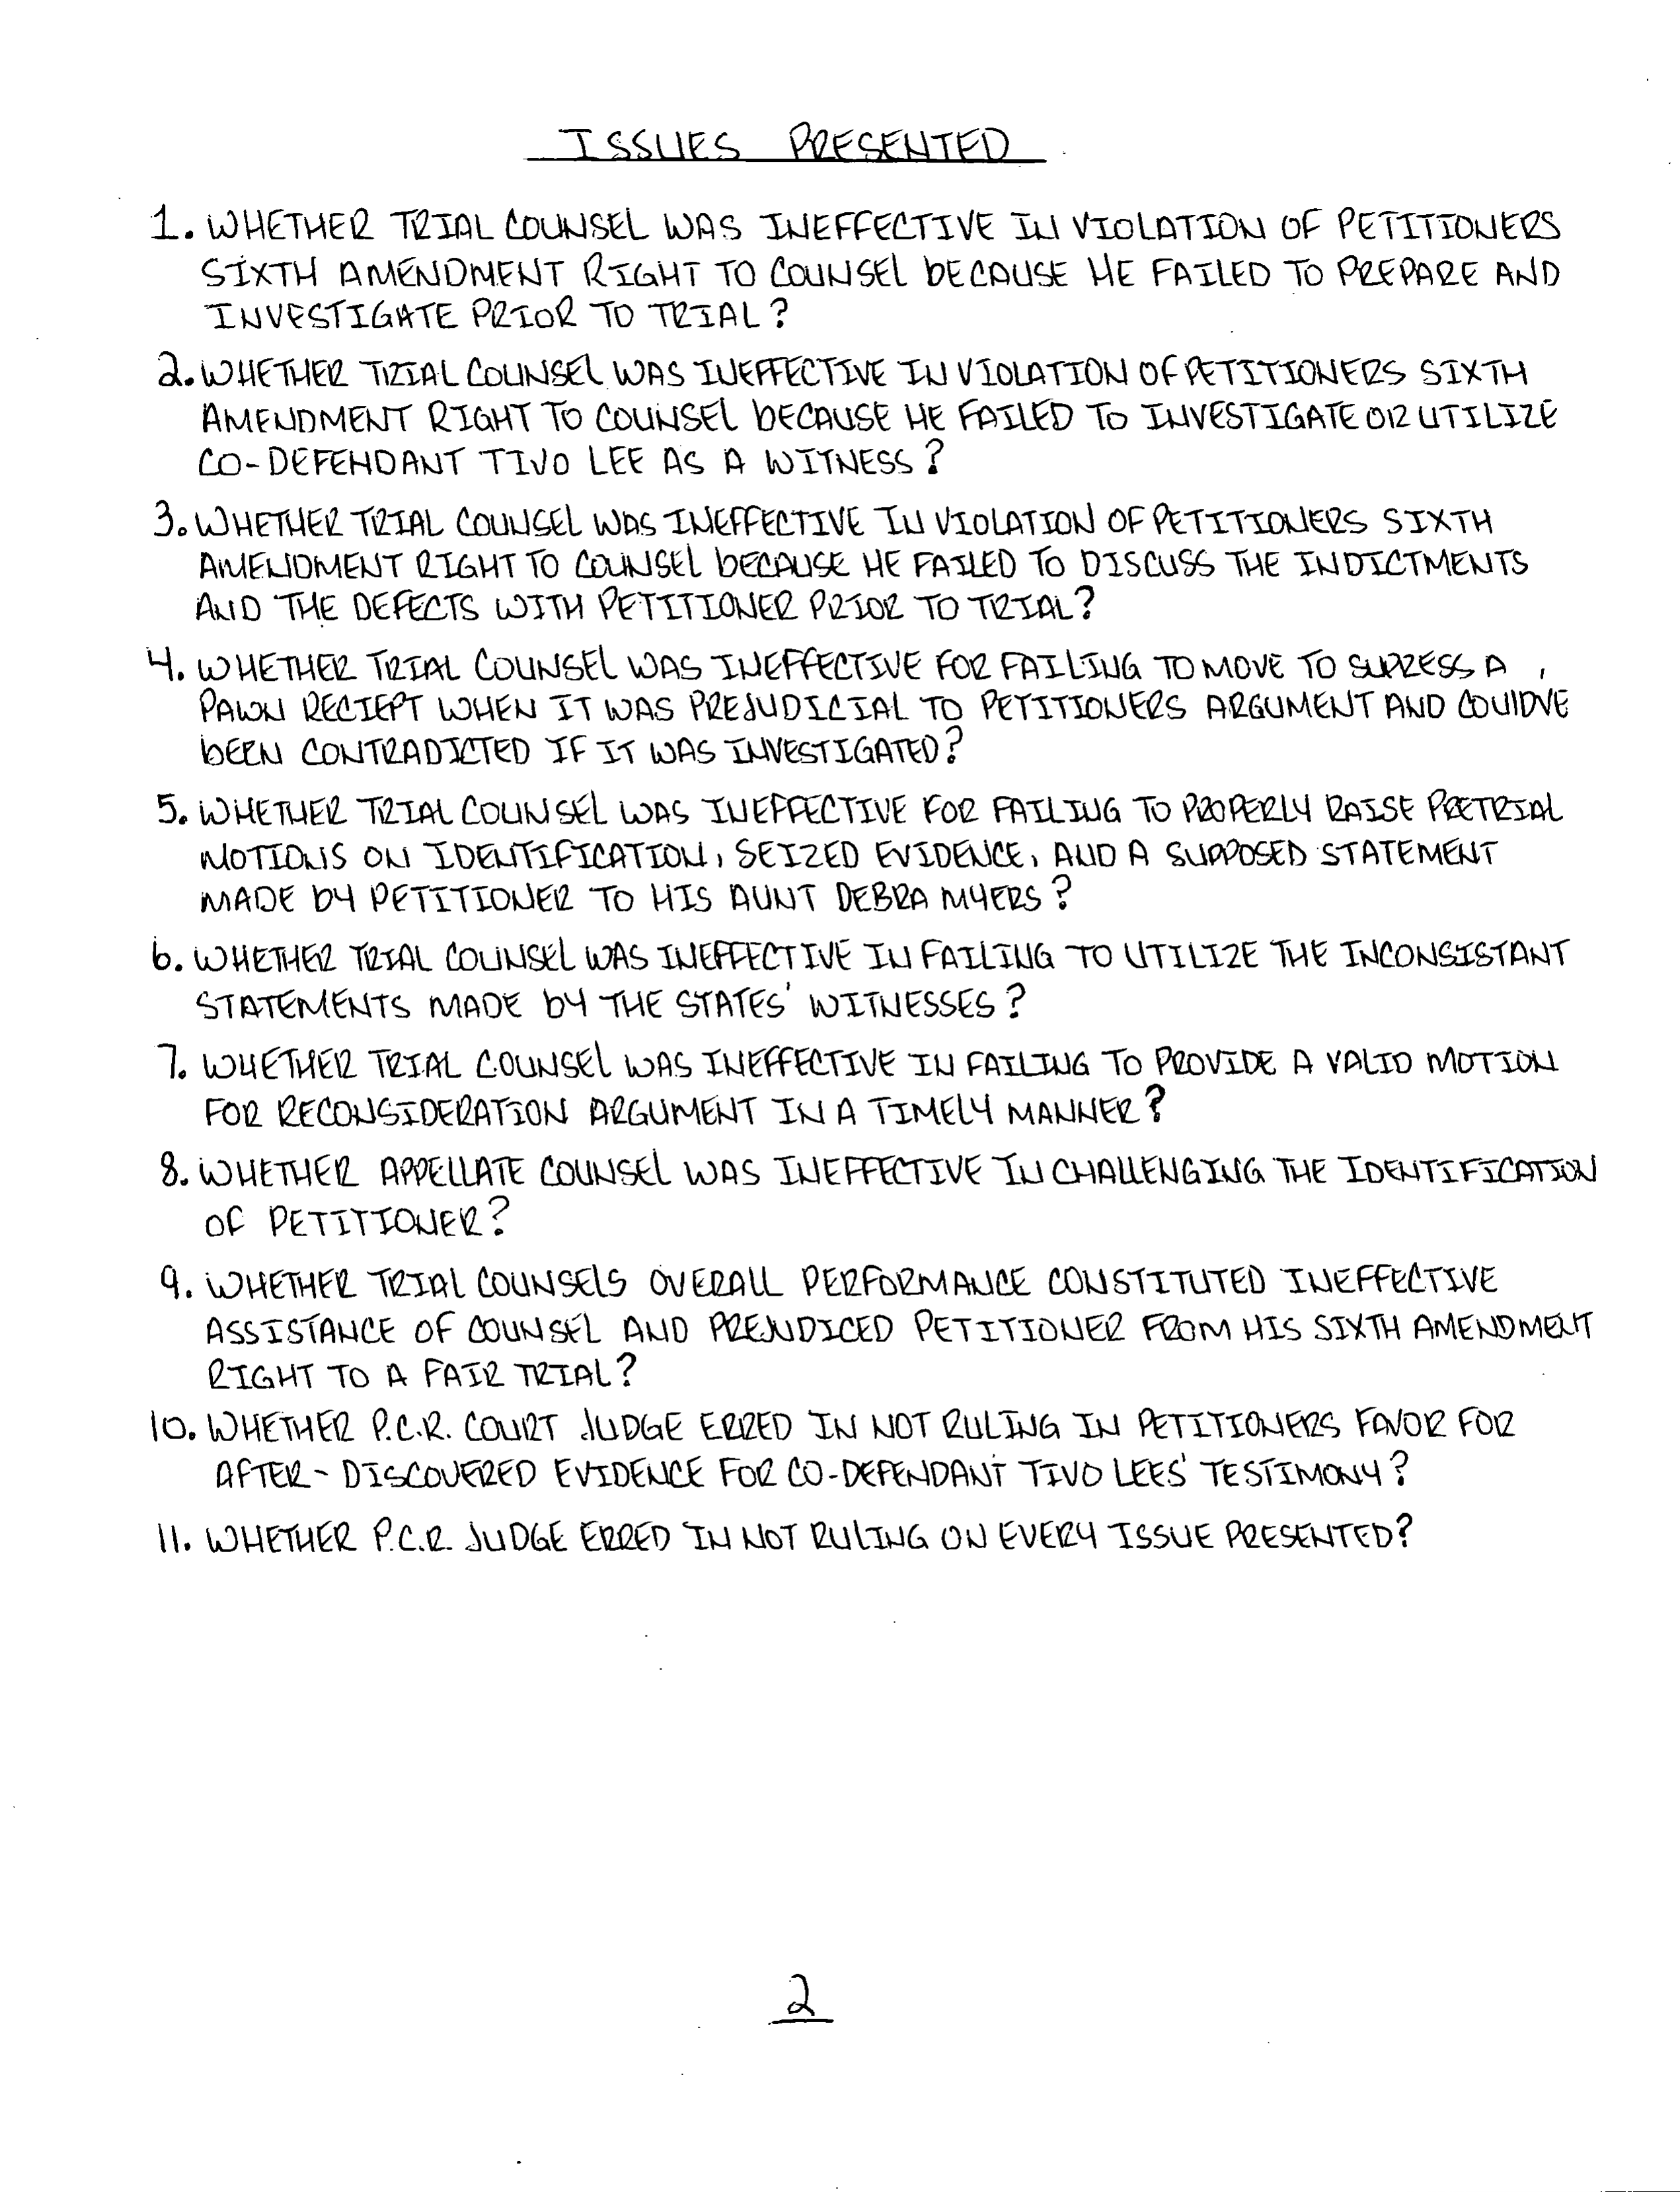 ISSUES PRESENTED
1. WHETHER TRIAL COUNSEL WAS INEFFECTIVE IN VIOLATION OF PETITIONERS
SIXTH AMENDMENT RIGHT TO COUNSEL BECAUSE HE FAILED TO PREPARE AND
INVESTIGATE PRIOR TO TRIAL?
2. WHETHER TRIAL COUNSEL WAS INEFFECTIVE IN VIOLATION OF PETITIONERS SIXTH
AMENDMENT RIGHT TO COUNSEL BECAUSE HE FAILED TO INVESTIGATE OR UTILIZE
CO-DEFENDANT TIVO LEE AS A WITNESS?
3. WHETHER TRIAL COUNSEL WAS INEFFECTIVE IN VIOLATION OF PETITIONERS SIXTH
AMENDMENT RIGHT TO COUNSEL BECAUSE HE FAILED TO DISCUSS THE INDICTMENTS
AND THE DEFECTS WITH PETITIONER PRIOR TO TRIAL?
4. WHETHER TRIAL COUNSEL WAS INEFFECTIVE FOR FAILING TO MOVE TO SUPRESS A
PAWN RECIEPT WHEN IT WAS PREJUDICIAL TO PETITIONERS ARGUMENT AND COULDVE
BEEN CONTRADICTED IF IT WAS INVESTIGATED?
5. WHETHER TRIAL COUNSEL WAS INEFFECTIVE FOR FAILING TO PROPERLY RAISE PRETRIAL
MOTIONS ON IDENTIFICATION, SEIZED EVIDENCE, AND A SUPPOSED STATEMENT
MADE BY PETITIONER TO HIS AUNT DEBRA MYERS?
6. WHETHER TRIAL COUNSEL WAS INEFFECTIVE IN FAILING TO UTILIZE THE INCONSISTANT
STATEMENTS MADE BY THE STATES' WITNESSES?
7. WHETHER TRIAL COUNSEL WAS INEFFECTIVE IN FAILING TO PROVIDE A VALID MOTION
FOR RECONSIDERATION ARGUMENT IN A TIMELY MANNER?
8. WHETHER APPELLATE COUNSEL WAS INEFFECTIVE IN CHALLENGING THE IDENTIFICATION
OF PETITIONER?
9. WHETHER TRIAL COUNSELS OVERALL PERFORMANCE CONSTITUTED INEFFECTIVE
ASSISTANCE OF COUNSEL AND PREJUDICED PETITIONER FROM HIS SIXTH AMENDMENT
RIGHT TO A FAIR TRIAL?
10. WHETHER P.C.R. COURT JUDGE ERRED IN NOT RULING IN PETITIONERS FAVOR FOR
AFTER-DISCOVERED EVIDENCE FOR CO-DEFENDANT TIVO LEES' TESTIMONY?
11. WHETHER P.C.R. JUDGE ERRED IN NOT RULING ON EVERY ISSUE PRESENTED?
2